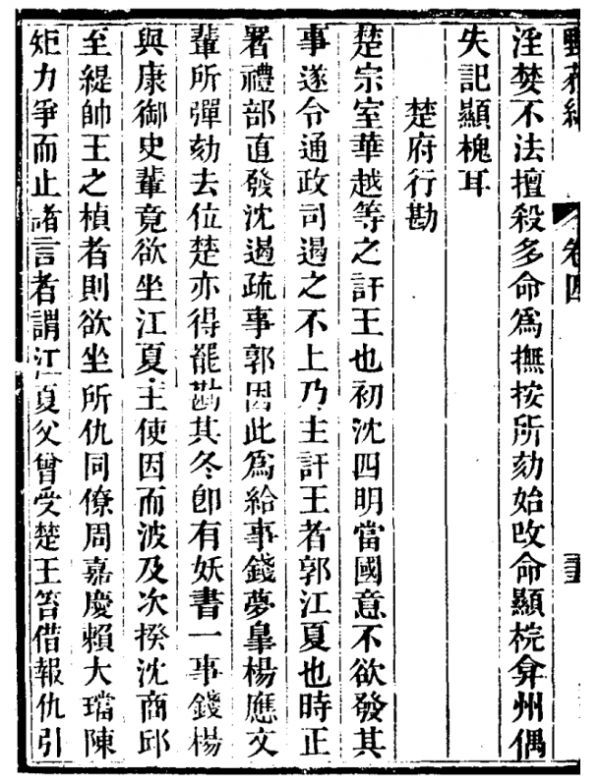 野獲編
卷四
淫婪不法擅殺多命爲撫按所劾始改命顯梡弇州偶
失記顯槐耳
楚府行勘
楚宗室華越等之訐王也初沈四明當國意不欲發其
事遂令通政司遏之不上乃主訐王者郭江夏也時正
署禮部直發沈遏疏事郭因此爲給事錢夢皐楊應文
輩所彈劾去位楚亦得罷勘其冬卽有妖書一事錢楊
與康御史輩竟欲坐江夏主使因而波及次揆沈商邱
至緹帥王之楨者則欲坐所仇同僚周嘉慶賴大璫陳
矩力爭而止諸言者謂江夏父曾受楚王笞借報仇引